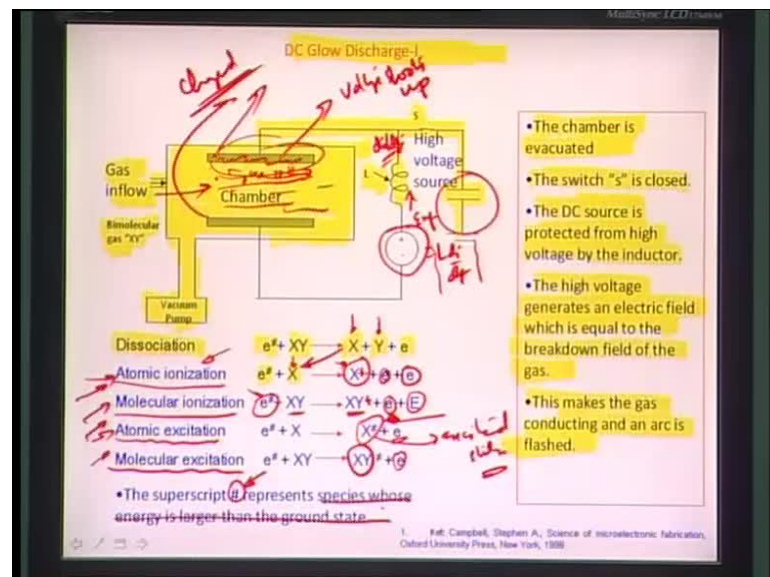 MultiSync LCD
DC Glow Discharge-I
charged
Voltage shoots up
s
High voltage source
L
Gas inflow
Chamber
Bimolecular gas "XY"
Vacuum Pump
L di/dt
Dissociation e# + XY → X + Y + e
Atomic ionization e# + X → X+ + e + e
Molecular ionization e# + XY → XY+ + e + E
Atomic excitation e# + X → X# + e
Molecular excitation e# + XY → XY# + e
excited state
•The superscript # represents species whose
energy is larger than the ground state
•The chamber is
evacuated
•The switch "s" is closed.
•The DC source is
protected from high
voltage by the inductor.
•The high voltage
generates an electric field
which is equal to the
breakdown field of the
gas.
•This makes the gas
conducting and an arc is
flashed.
1. Ref: Campbell, Stephen A., Science of microelectronic fabrication,
Oxford University Press, New York, 1996